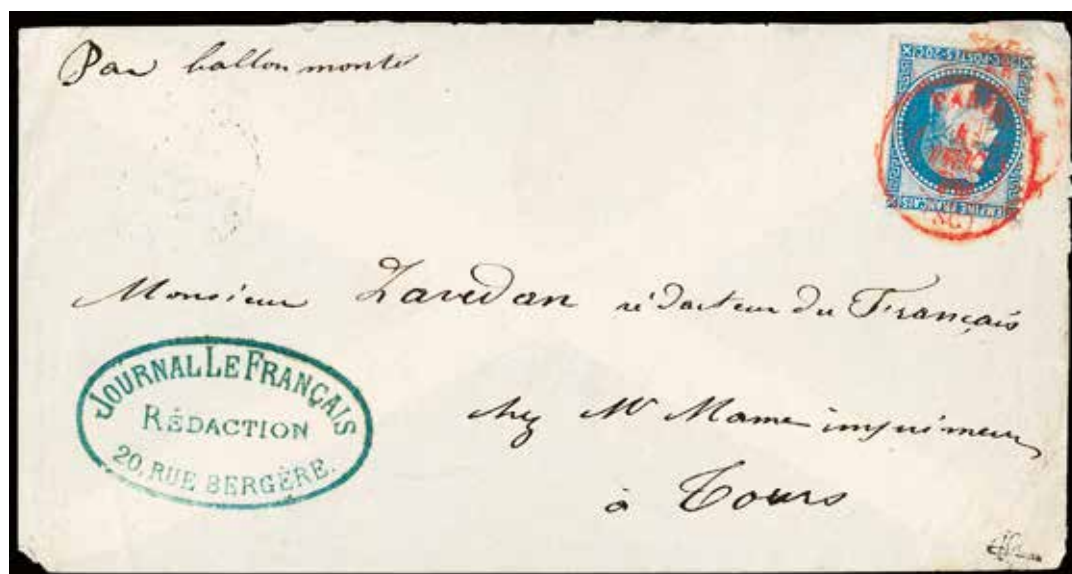 Par ballon monté
20 C POSTES 20 C
EMPIRE FRANÇAIS
PARIS
(SC)
Monsieur Lavedan rédacteur du Français
chez Mr Mame imprimeur
à Tours
JOURNAL LE FRANÇAIS
RÉDACTION
20, RUE BERGÈRE.